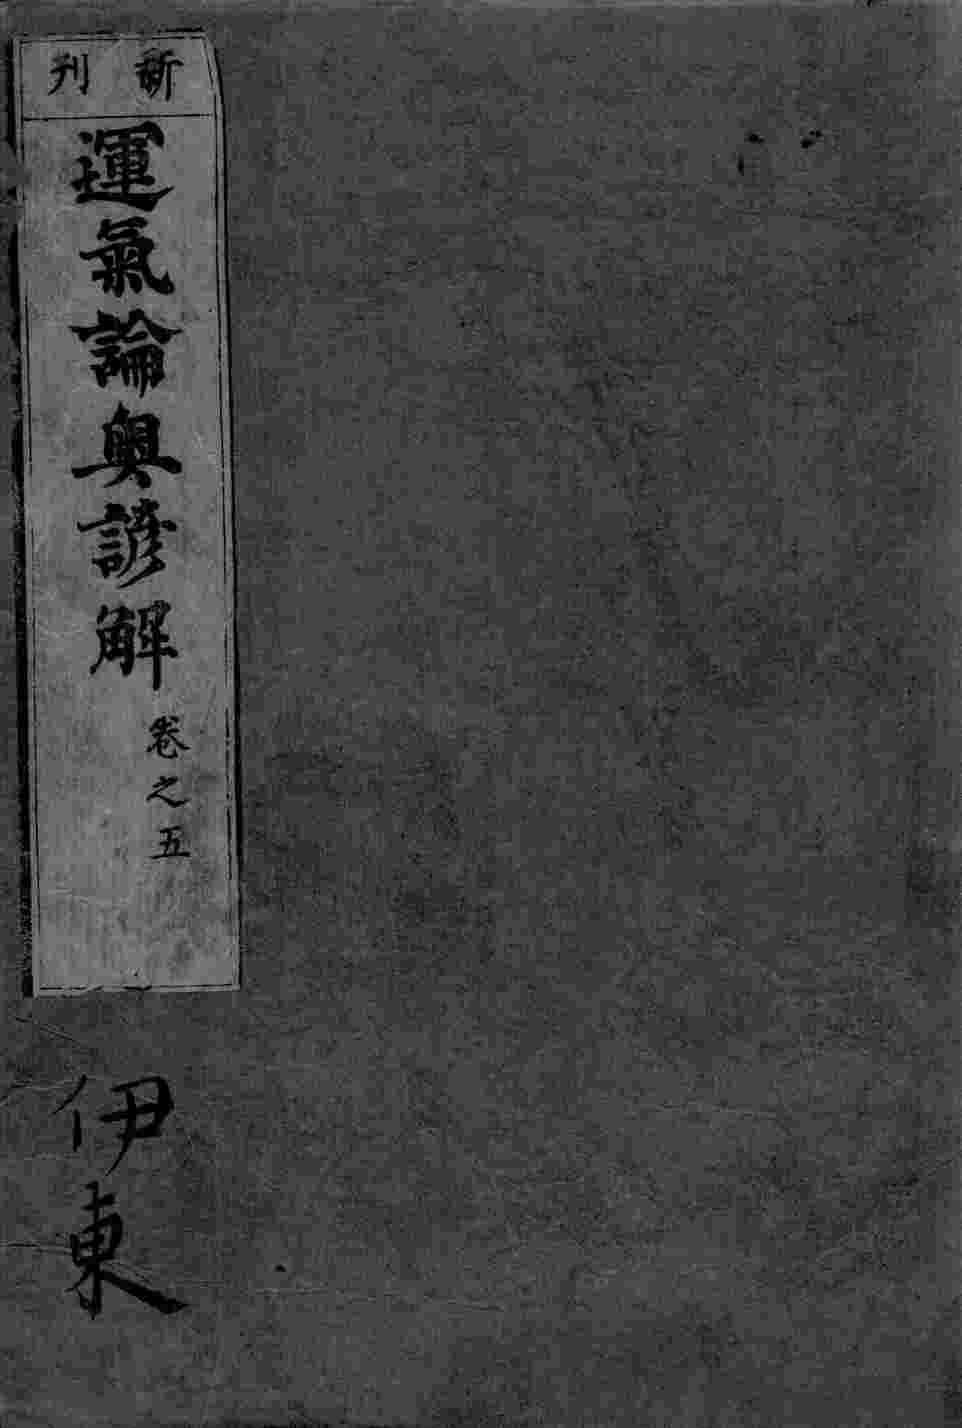 新刊
運氣論奧諺解
卷之五
伊東